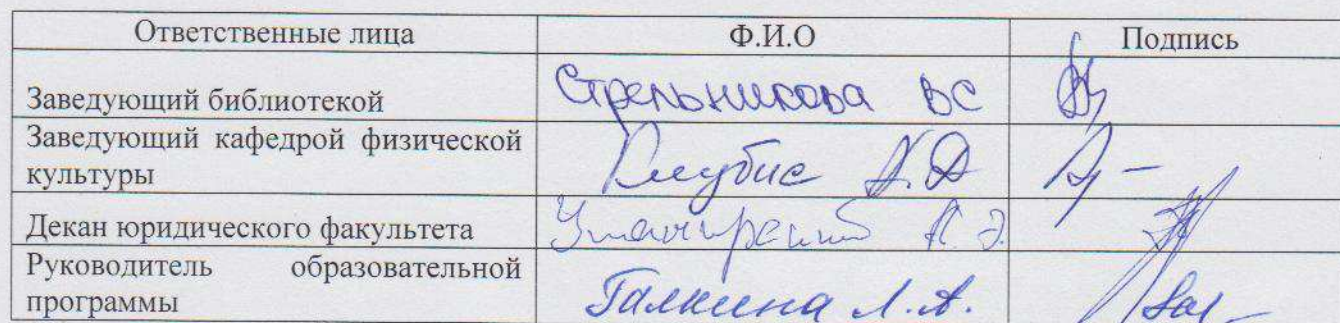 Ответственные лица Ф.И.О Подпись
Заведующий библиотекой Стрельникова ВС
Заведующий кафедрой физической
культуры А.Д
Декан юридического факультета А.Э.
Руководитель образовательной
программы Галкина Л.А.